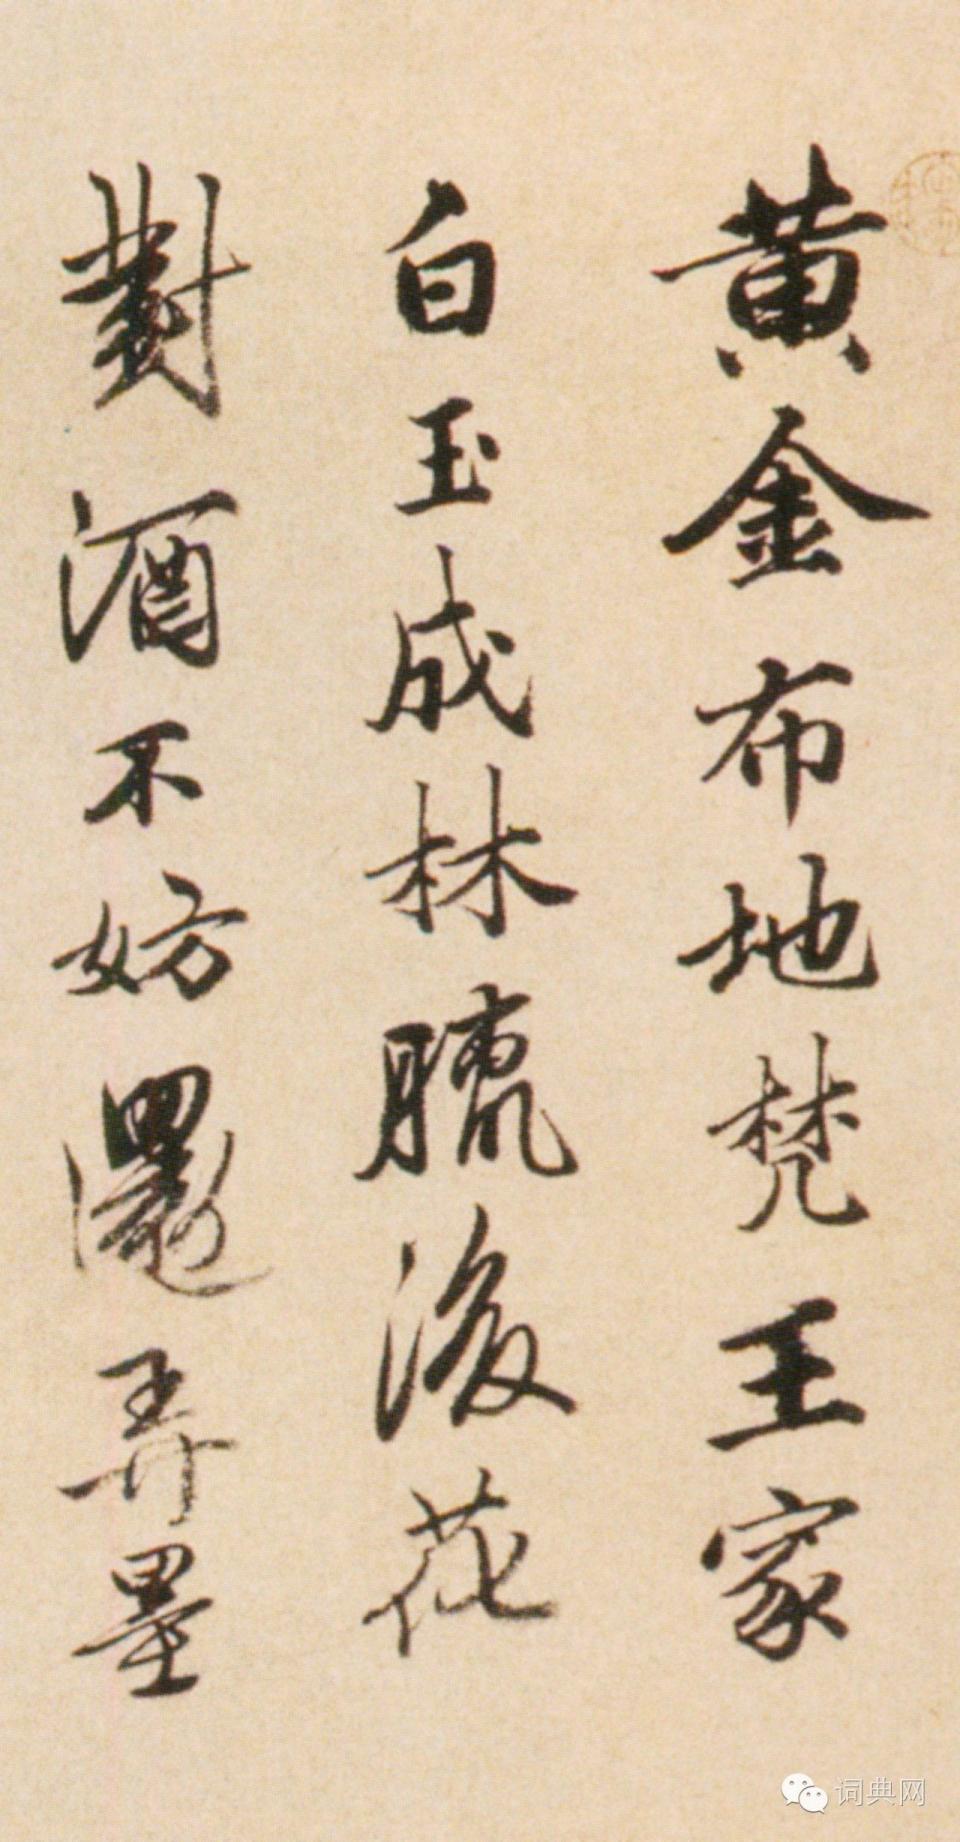 黄金布地梵王家
白玉成林臈後花
對酒不妨還弄墨
词典网